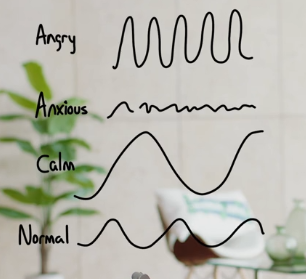 Angry
Anxious
Calm
Normal